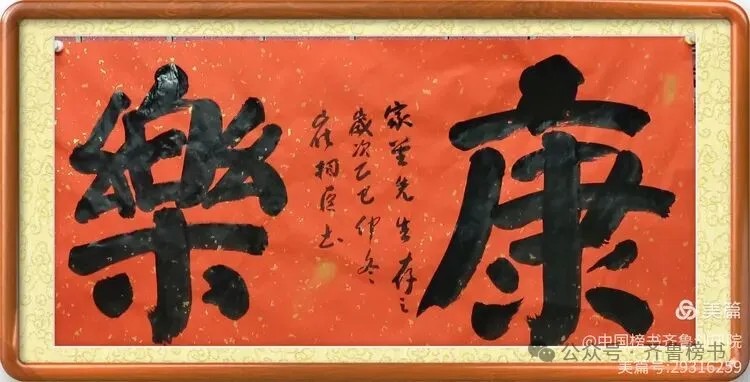 康樂
家圣先生存之
歲次乙巳仲冬
相臣书
美篇
@中国榜书齐鲁
院
公众号·齐鲁榜书
美篇号:29316259